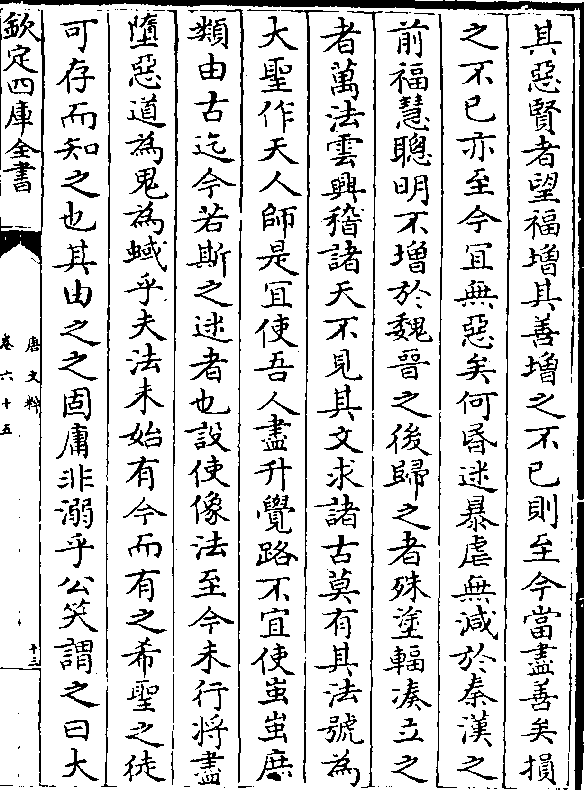 其惡賢者望福增其善增之不已則至今當盡善矣損
之不已亦至今宜無惡矣何昬迷暴虐無減於秦漢之
前福慧聰明不增於魏晉之後歸之者殊塗輻凑立之
者萬法雲興稽諸天不見其文求諸古莫有其法號為
大聖作天人師是宜使吾人盡升覺路不宜使蚩蚩庶
類由古迄今若斯之迷者也設使像法至今未行將盡
墮惡道為鬼為蜮乎夫法未始有今而有之希聖之徒
可存而知之也其由之之固庸非溺乎公笑謂之曰大
欽定四庫全書
唐文粹
卷六十五
十三